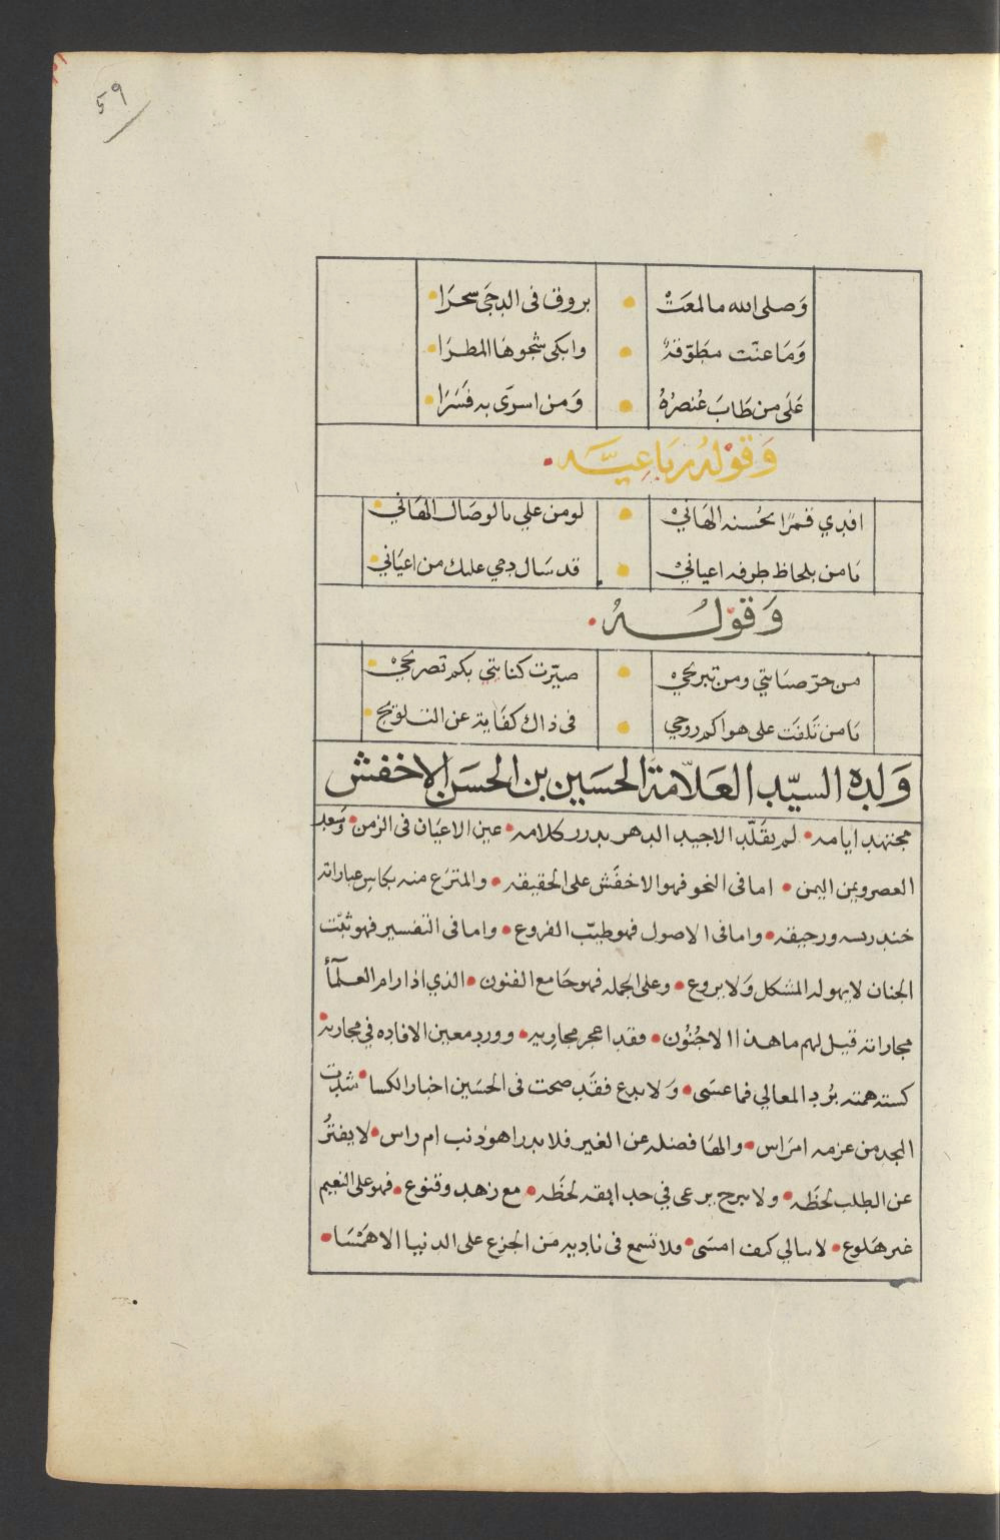 ٥٩
وَصلى الله ما لمعَتْ • بروق فى الدجَى سحَرَا •
وَمَا غنّت مطَوّقةٌ • وابكى شجوهَا المطرَا •
عَلَى من طَابَ عُنصرُهُ • وَمن اسرَى به فسَرَا •
وَقوْلهُ رُبَاعِيَّه •
افدِي قمرًا بحُسنه الهَانيْ • لو من علي بالوصَال الهَاني •
يَا من بلحاظ طرفه اعيانيْ • قد سَال دمي عليك من اعيَاني •
وَقوْلُهُ •
من حرّ صبَابتي ومن تبريحيْ • صيّرت كنايتي بكم تصريحيْ •
يَا من تَلفَت على هواكم روحي • فى ذاك كفَاية عن التلويح •
وَلده السيّد العَلاّمة الحسَين بن الحسَن الاخفش
مجتهد ايامه • لم يقَلّد الاجيد الدهر بدرر كلامه • عين الاعيَان فى الزمن • وسَعد
العصر ويمن اليمن • اما فى النحو فهو الاخفَش على الحقيقه • والمترَع منه بكاس عباراته
خندريسه ورحيقه • واما فى الاصول فهو طيّب الفروع • واما فى التفسير فهو ثبَت
الجنان لا يهوله المشكل وَلا يروع • وعلى الجمله فهو جَامع الفنون • الذي اذا رام العلمآء
مجاراته قيل لهم ما هذا الا جُنُون • فقد اعجز مجاريه • وورد معين الافاده في مجاريه •
كسته همته بُرد المعالي فما عسَى • وَلا بدع فقَد صحت فى الحسَين اخبار الكسا • شدت
الجد من عزمه امرَاس • والهَا فضله عن الغير فلا يدرا هو ذنب ام راس • لا يفترُ
عن الطلب لحظَه • ولا يبرح يرعى في حدايقه لحظَه • مع زهد وقنوع • فهو على النعيم
غير هَلوع • لا يبالي كيف امسَى • ولا تسمع فى ناديه من الجزع على الدنيا الا همْسَا •